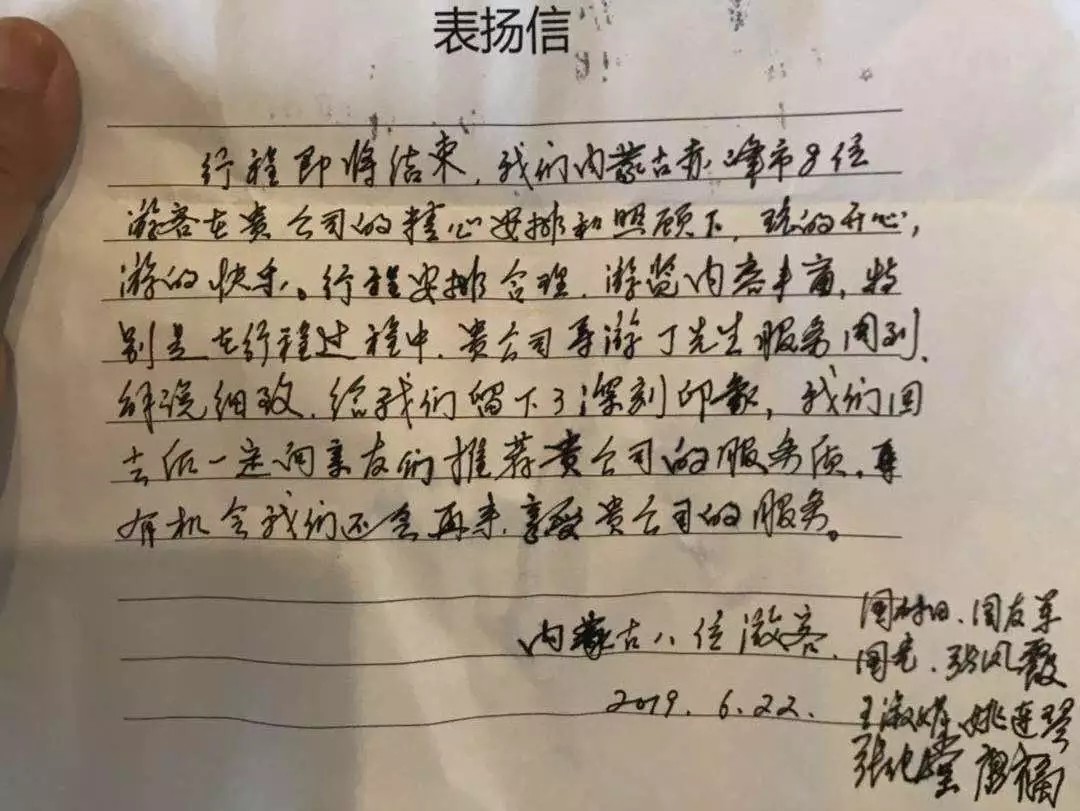 表扬信
行程即将结束，我们内蒙古赤峰市8位
游客在贵公司的精心安排和照顾下，玩的开心，
游的快乐。行程安排合理，游览内容丰富，特
别是在行程过程中，贵公司导游丁先生服务周到、
解说细致，给我们留下了深刻印象，我们回
去后一定向亲友们推荐贵公司的服务质，再
有机会我们还会再来，享受贵公司的服务。
内蒙古八位游客、 周友军
周 张凤霞
2019.6.22. 王淑 姚连琴